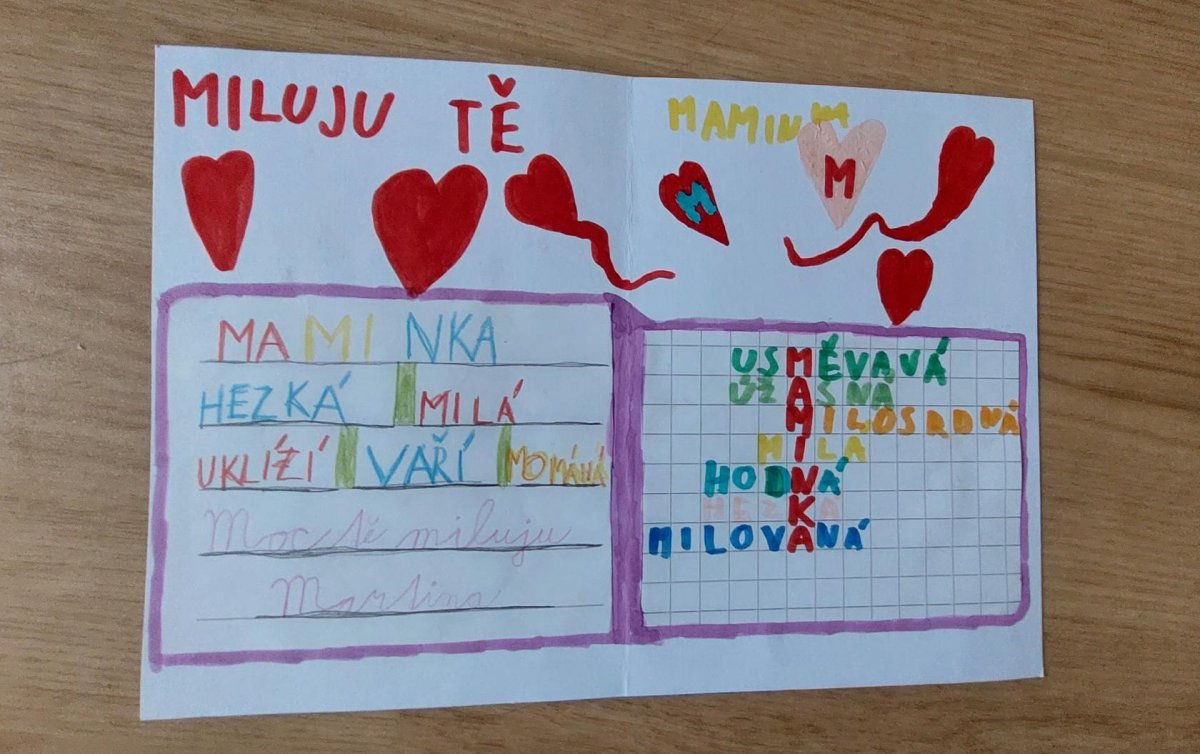 MILUJU TĚ
MAMIN
M
M
MAMINKA
HEZKÁ MILÁ
UKLÍŽÍ VAŘÍ
Moc tě miluju
Martina
USMĚVAVÁ
ÚŽASNÁ
MILOSRDNÁ
MILA
HODNÁ
HEZKA
MILOVANÁ